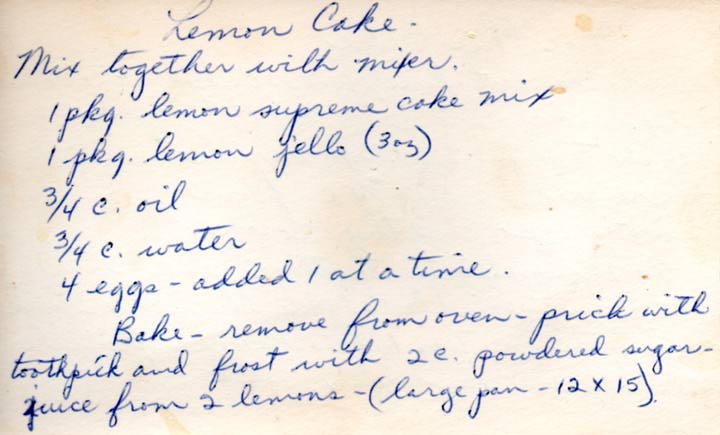 Lemon Cake.
Mix together with mixer.
1 pkg. lemon supreme cake mix
1 pkg. lemon jello (3oz)
3/4 c. oil
3/4 c. water
4 eggs - added 1 at a time.
Bake - remove from oven - prick with
toothpick and frost with 2 c. powdered sugar -
juice from 2 lemons - (large pan - 12 X 15).